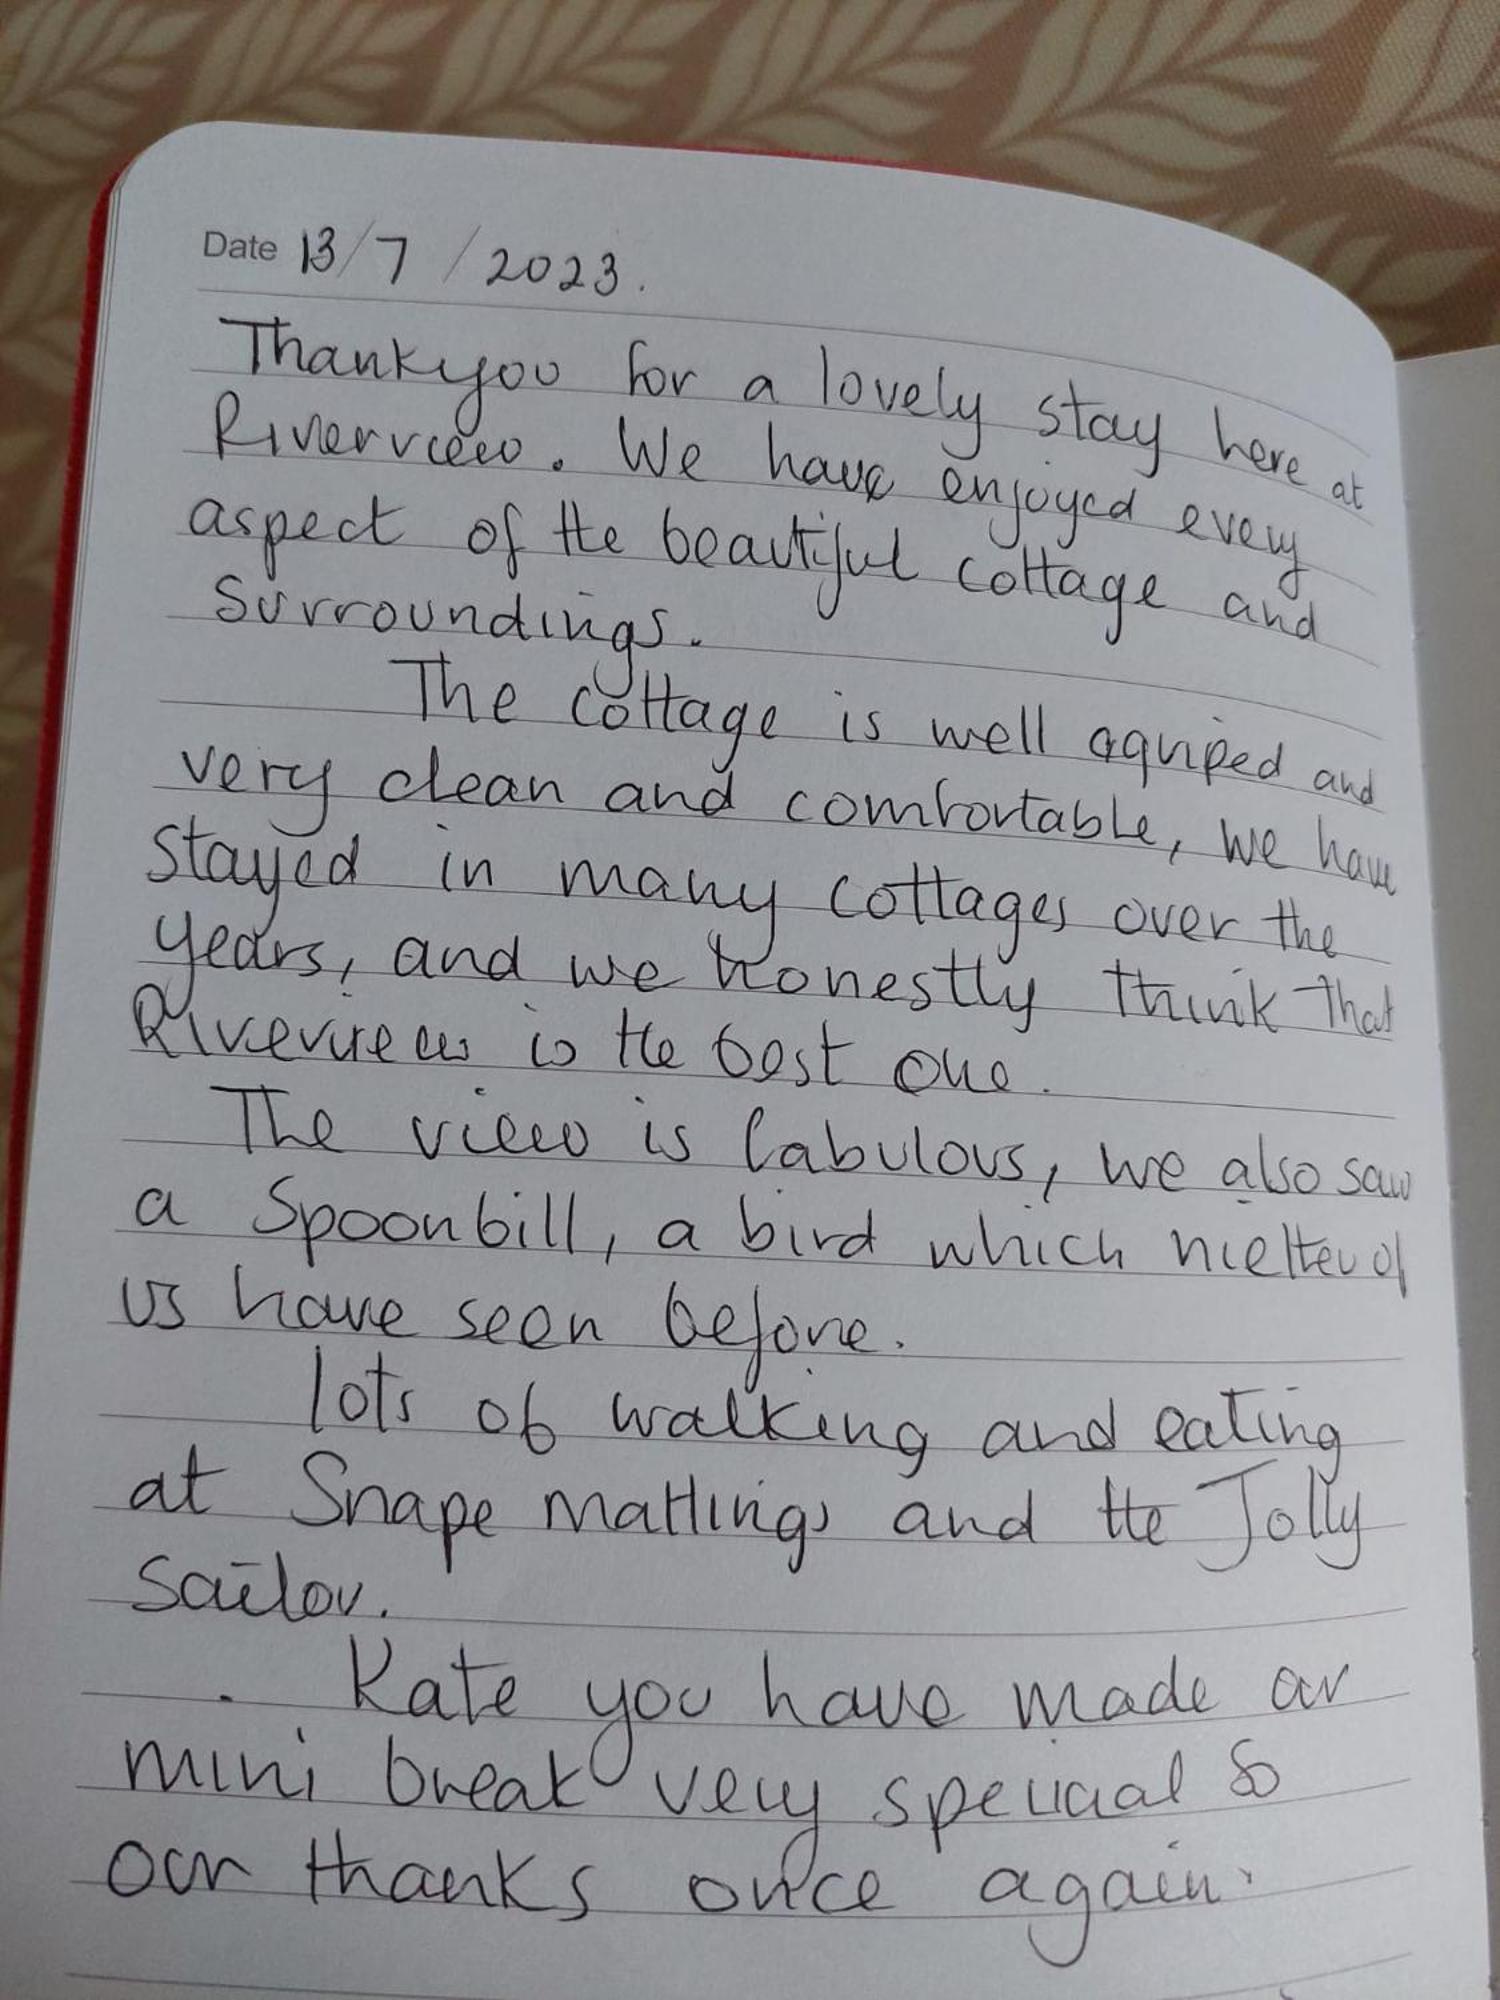 Date 13/7/2023.
Thankyou for a lovely stay here at
Riverview. We have enjoyed every
aspect of the beautiful cottage and
surroundings.
The cottage is well aquiped and
very clean and comfortable, we have
stayed in many cottages over the
years, and we honestly think that
Riverview is the best one.
The view is fabulous, we also saw
a Spoonbill, a bird which nietter of
us have seen before.
lots of walking and eating
at Snape Maltings and the Jolly
Sailor.
Kate you have made our
mini break very special so
our thanks once again.